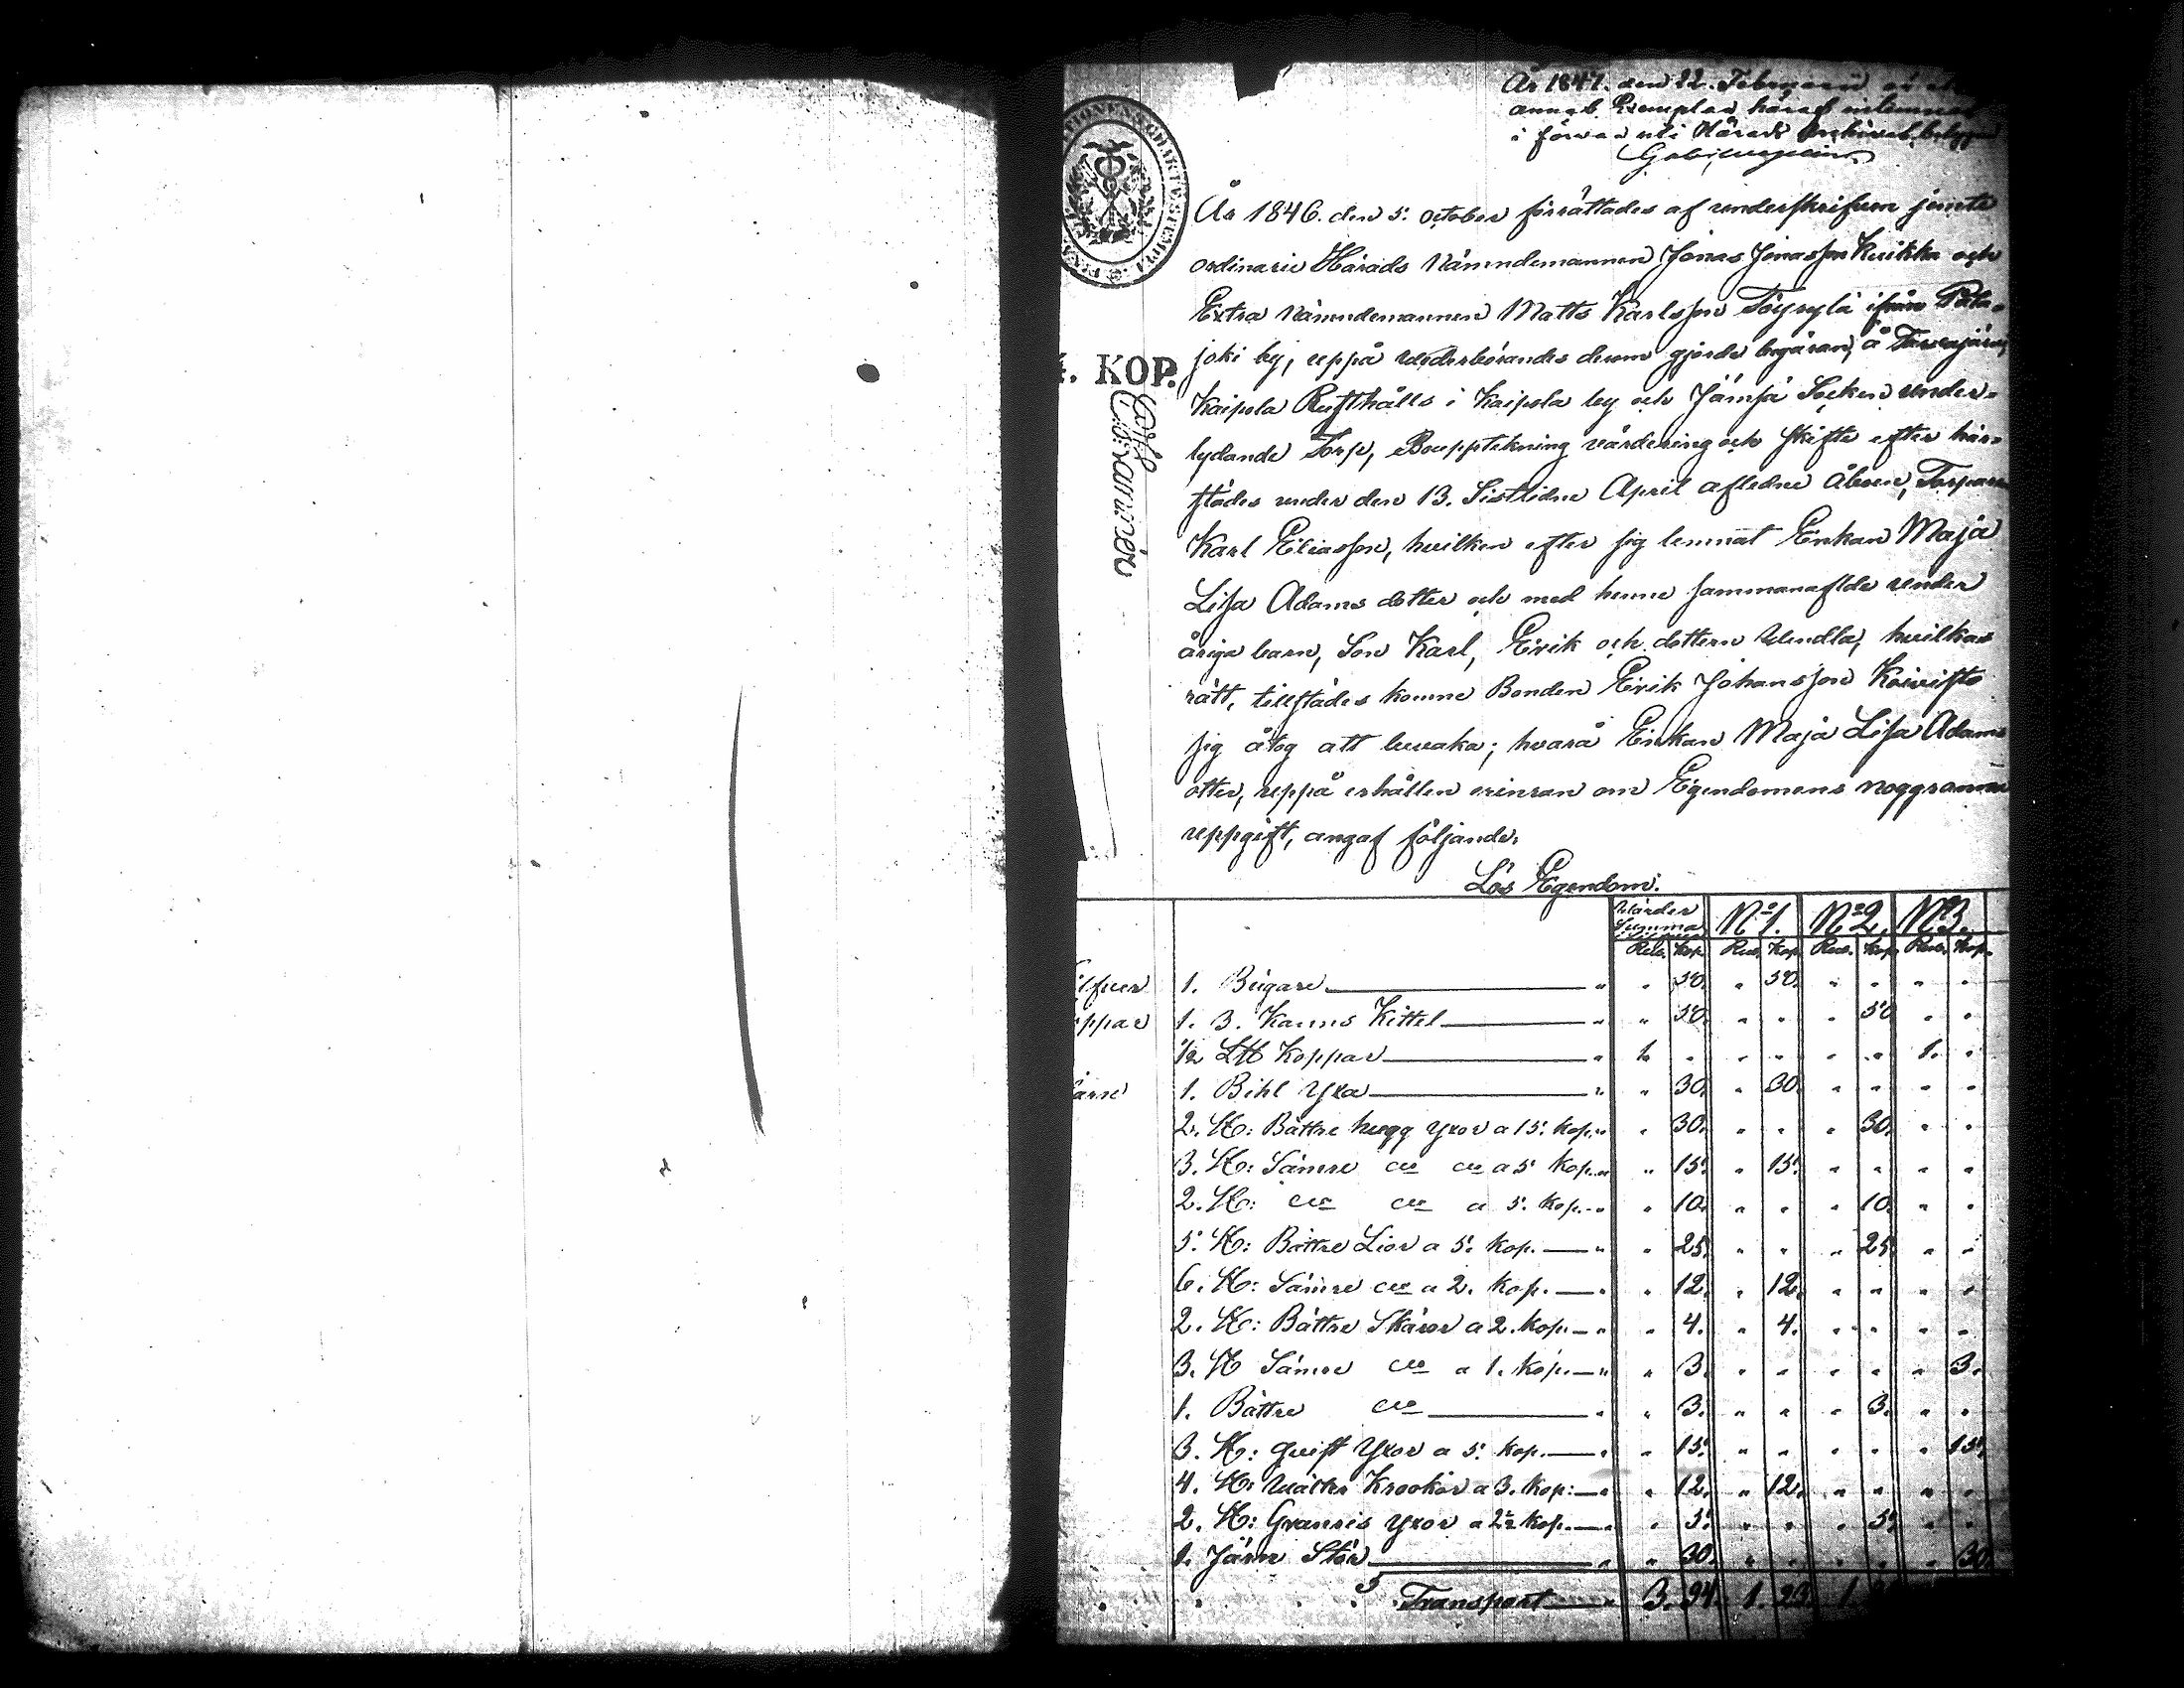 År 1847. den 22. Februarii
annat Exemplar häraf inlemnat
i förvar uti Härads Archivet
År 1846. den 5. october förrättades af underskrifven jemte
ordinarie Härads Nämndemannen Jonas Jonasson Kuikka och
Extra Nämndemannen Matts Karlsson Töyrylä ifrån Pata-
joki by, uppå vederbörandes derom gjorde begäran, å
Kaipola Rusthålls i Kaipola by och Jämsä Socken under-
lydande Torp, Bouppteckning värdering och skifte efter här-
städes under den 13. Sistlidne April afledne Åboen, Torparen
Karl Eliasson, hvilken efter sig lemnat Enkan Maja
Lisa Adams dotter och med henne sammanaflde under
åriga barn, Son Karl, Erik och dottern Wendla, hvilkas
rätt, tillstädes komne Bonden Erik Johansson Koivisto
sig åtog att bevaka; hvarå Enkan Maja Lisa Adams
otter, uppå erhållen erinran om Egendomens noggranna
uppgift, angaf följande.
Lös Egendom.
Värder Summa N:o 1. N:o 2. N:o 3.
Rub. Kop. Rub. Kop. Rub. Kop. Rub. Kop.
1. Bägare " " 50. " 50. " " " "
ppar 1. 3. Kanns Kittel " " 50. " " " 50 " "
1/2 LH Koppar " 1. " " " " " 1. "
1. Bihl Yxa " " 30. " 30. " " " "
2. St: Bättre hugg yxor a 15. kop. " " 30. " " " 30. " "
3. St: Sämre do do a 5 kop. " " 15. " 15. " " " "
2. St: do do a 5. kop. " " 10. " " " 10. " "
5. St: Bättre Lior a 5. kop. " " 25. " " " 25. " "
6. St: Sämre do a 2. kop. " " 12. " 12. " " " "
2. St: Bättre Skäror a 2. kop. " " 4. " 4. " " " "
3. St Sämre do a 1. kop. " " 3. " " " " " 3.
1. Bättre do " " 3. " " " 3. " "
3. St: qvist Yxor a 5. kop. " " 15. " " " " " 15.
4. St: Krookor a 3. kop: " " 12. " 12. " " " "
2. St: Granris yxor a 2 1/2 kop. " " 5. " " " 5. " "
1. Järn Stör " " 30. " " " " " 30.
Transport 3. 94. 1. 23. 1.
. KOP.